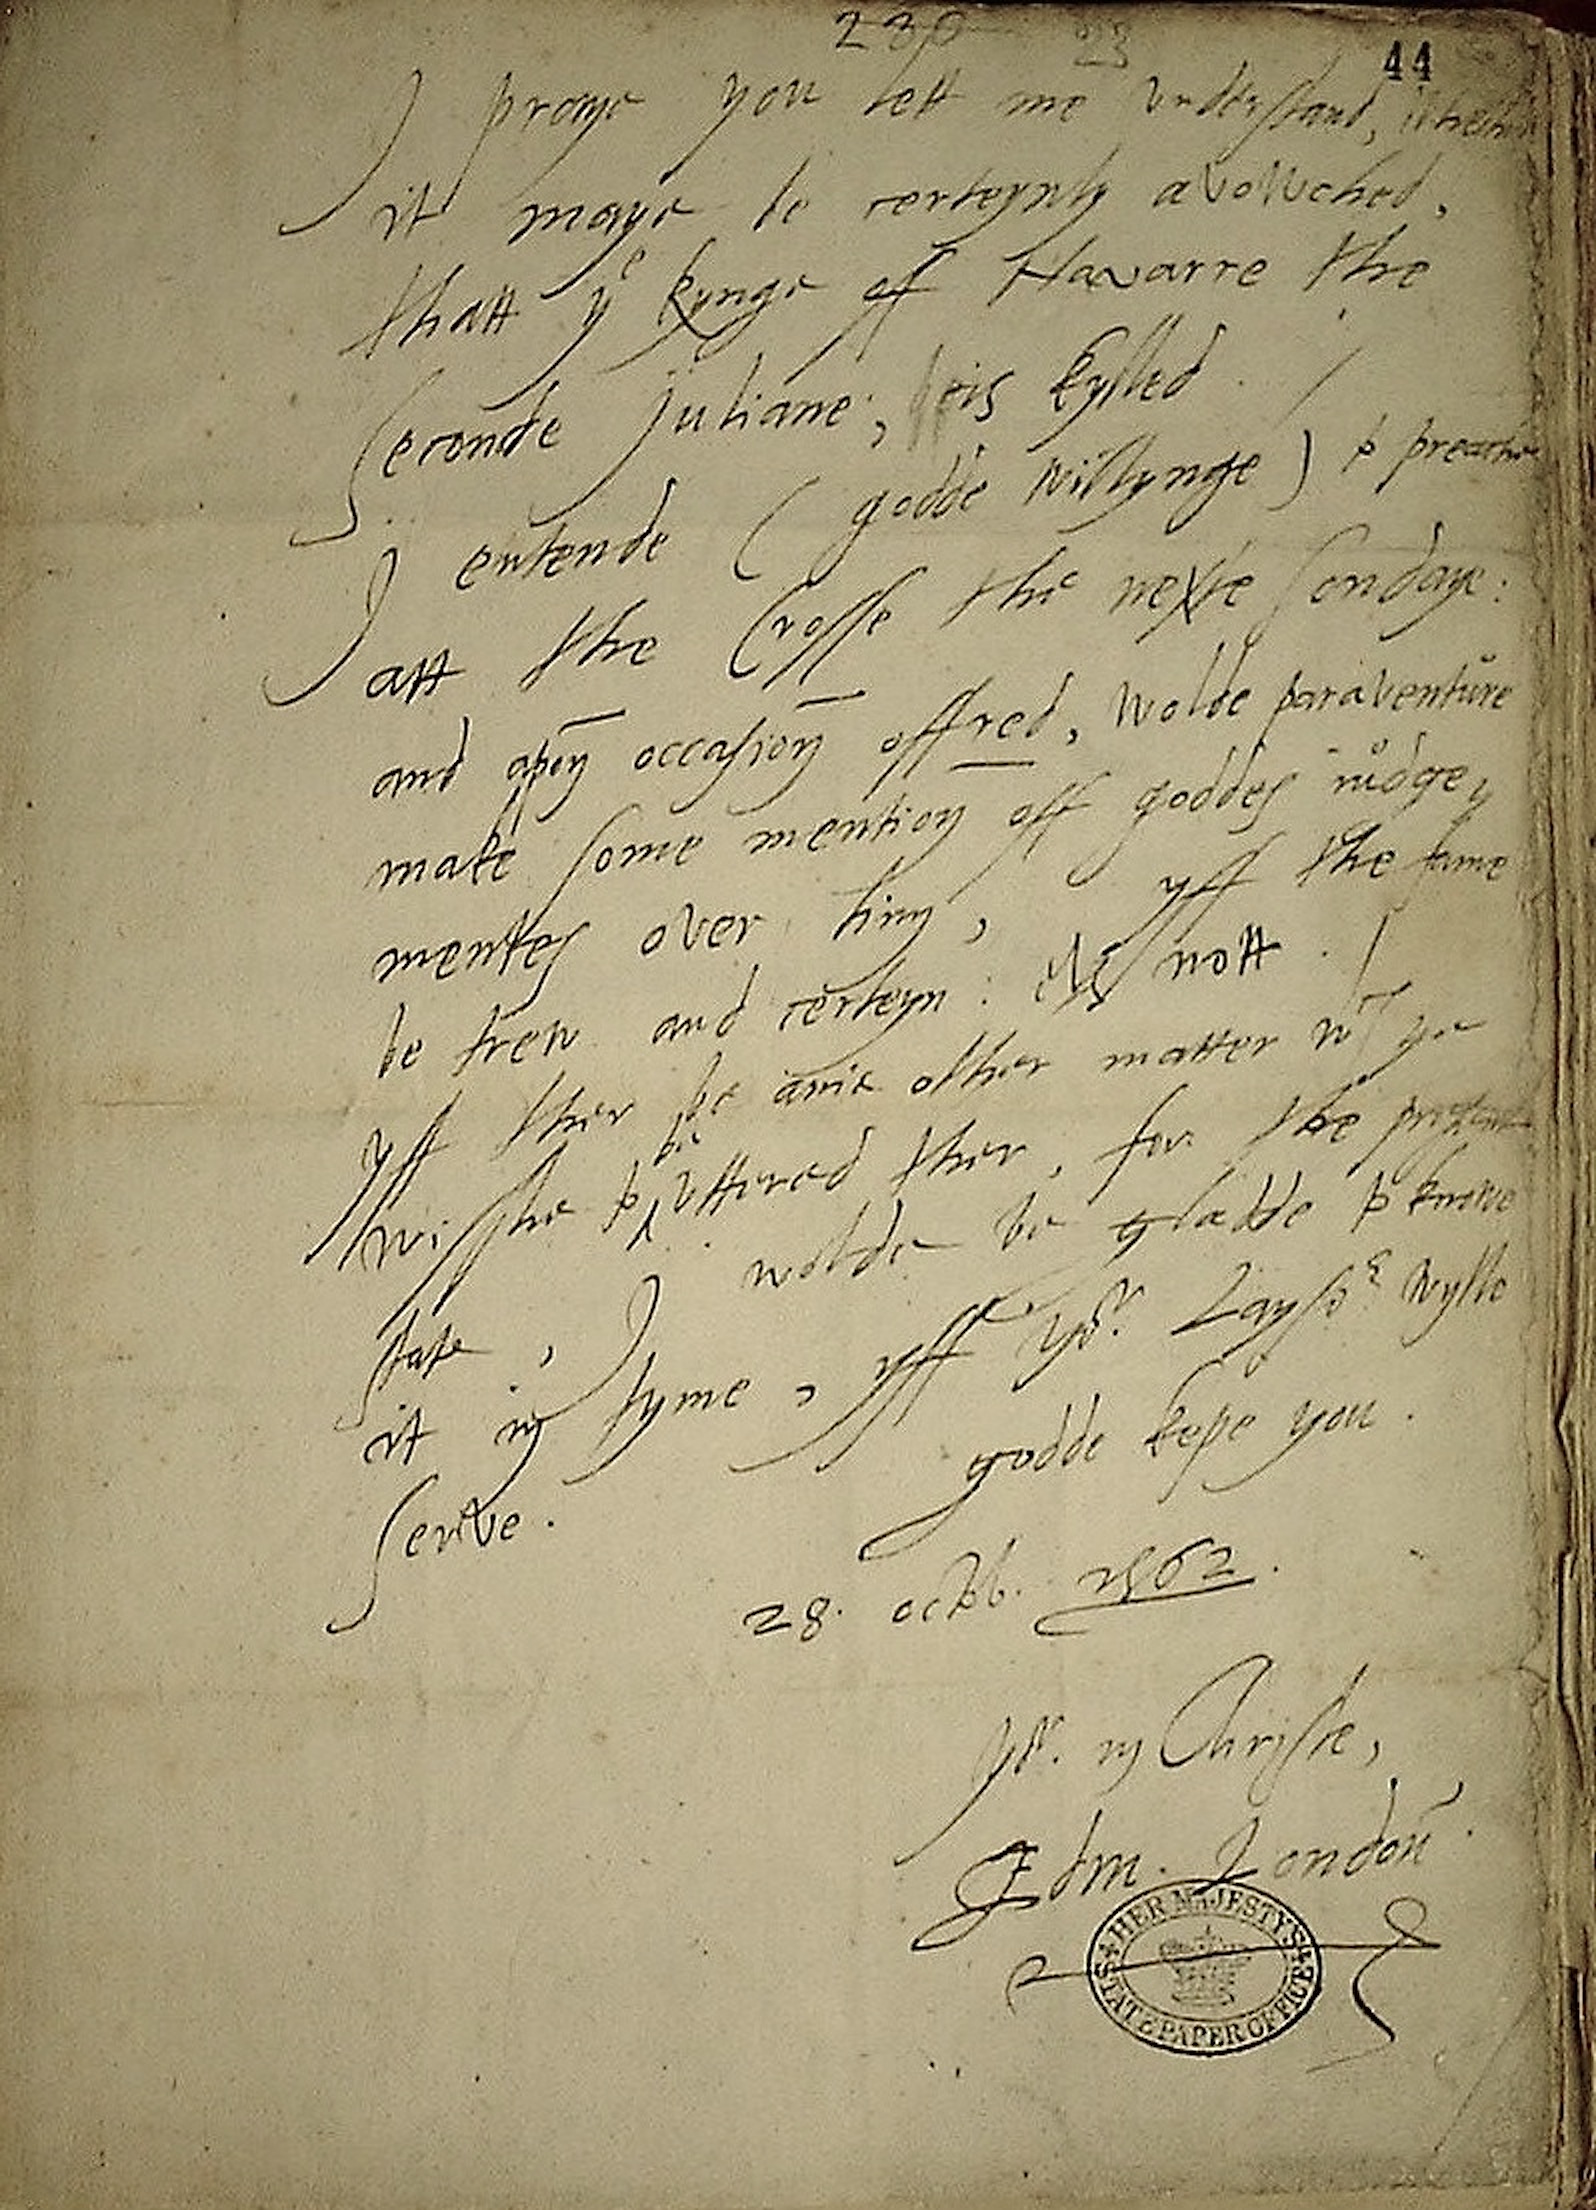 44
I praye you lett me understand, whether
it maye be certeynly avowched,
thatt yͤ kynge off Navarre the
seconde Juliane, is kylled. /
I entende (godde willynge) to preache
att the Crosse the nexte sondaye:
and apoñ occasioñ offred, wolde paraventure
make some mention off goddes iudge,
mentes over him, yff the same
be trew and certeyn: els nott. /
Yff ther be anie other matter wᶜʰ ye
wisshe to be uttered ther, for the present
state, I wolde be gladde to knowe
it in tyme, yff yoʳ. laysʳᵉ wylle
serve. godde kepe you.
28. octob. 1562.
Yoʳ. in Christe,
Edm. Londoñ.
HER MAJESTY'S STATE PAPER OFFICE